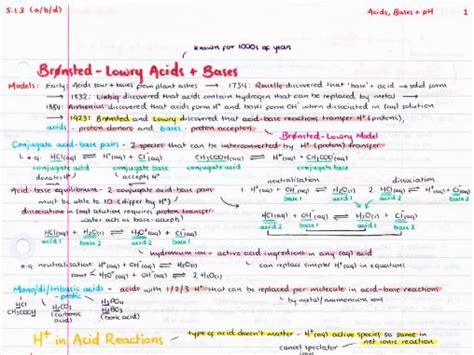 5.1.3 (a/b/d) Acids, Bases + pH 1
known for 1000s of years
Brønsted-Lowry Acids + Bases
Models: Early: Acids sour + bases from plant ashes → 1754: Rouelle discovered that 'base' + acid → solid form
→ 1832: Liebig discovered that acids contain hydrogen that can be replaced by metal
→ 1884: Arrhenius discovered that acids form H⁺ and bases form OH⁻ when dissociated in (aq) solution
→ 1923: Brønsted and Lowry discovered that acid-base reactions transfer H⁺ (protons),
acids - proton donors and bases - proton acceptors
Brønsted-Lowry Model
Conjugate acid-base pairs - 2 species that can be interconverted by H⁺ (proton) transfer
e.g. HCl(aq) ⇌ H⁺(aq) + Cl⁻(aq) CH₃COOH(aq) ⇌ H⁺(aq) + CH₃COO⁻(aq)
conjugate acid conjugate base conjugate acid conjugate base
donate accept donate accept
neutralisation dissociation
Acid-base equilibrium - 2 conjugate acid-base pairs 1. H⁺(aq) + OH⁻(aq) ⇌ H₂O(l) 2. HCl(aq) ⇌ H⁺(aq) + Cl⁻(aq)
must be able to (differ by H⁺)
dissociation in (aq) solution requires proton transfer
water act as base - accepts H⁺
HCl(aq) + OH⁻(aq) ⇌ H₂O(l) + Cl⁻(aq)
acid 1 base 2 acid 2 base 1
HCl(aq) + H₂O(l) ⇌ H₃O⁺(aq) + Cl⁻(aq)
acid 1 base 2 acid 2 base 1
hydronium ion - active acid ingredient in any (aq) acid
e.g. neutralisation: H⁺(aq) + OH⁻(aq) ⇌ H₂O(l) can replace complex H⁺(aq) in equations
same H₃O⁺(aq) + OH⁻(aq) ⇌ 2H₂O(l)
Mono/di/tribasic acids - acids with 1/2/3 H⁺ that can be replaced per molecule in acid-base reactions
-protic by metal/ammonium ions
HCl H₂SO₄ H₃PO₄
CH₃COOH H₂CO₃ H₃BO₃
(carbonic acid) (boric acid)
H⁺ in Acid Reactions
type of acid doesn't matter - H⁺(aq) active species so same in net ionic reaction
cancel spectator